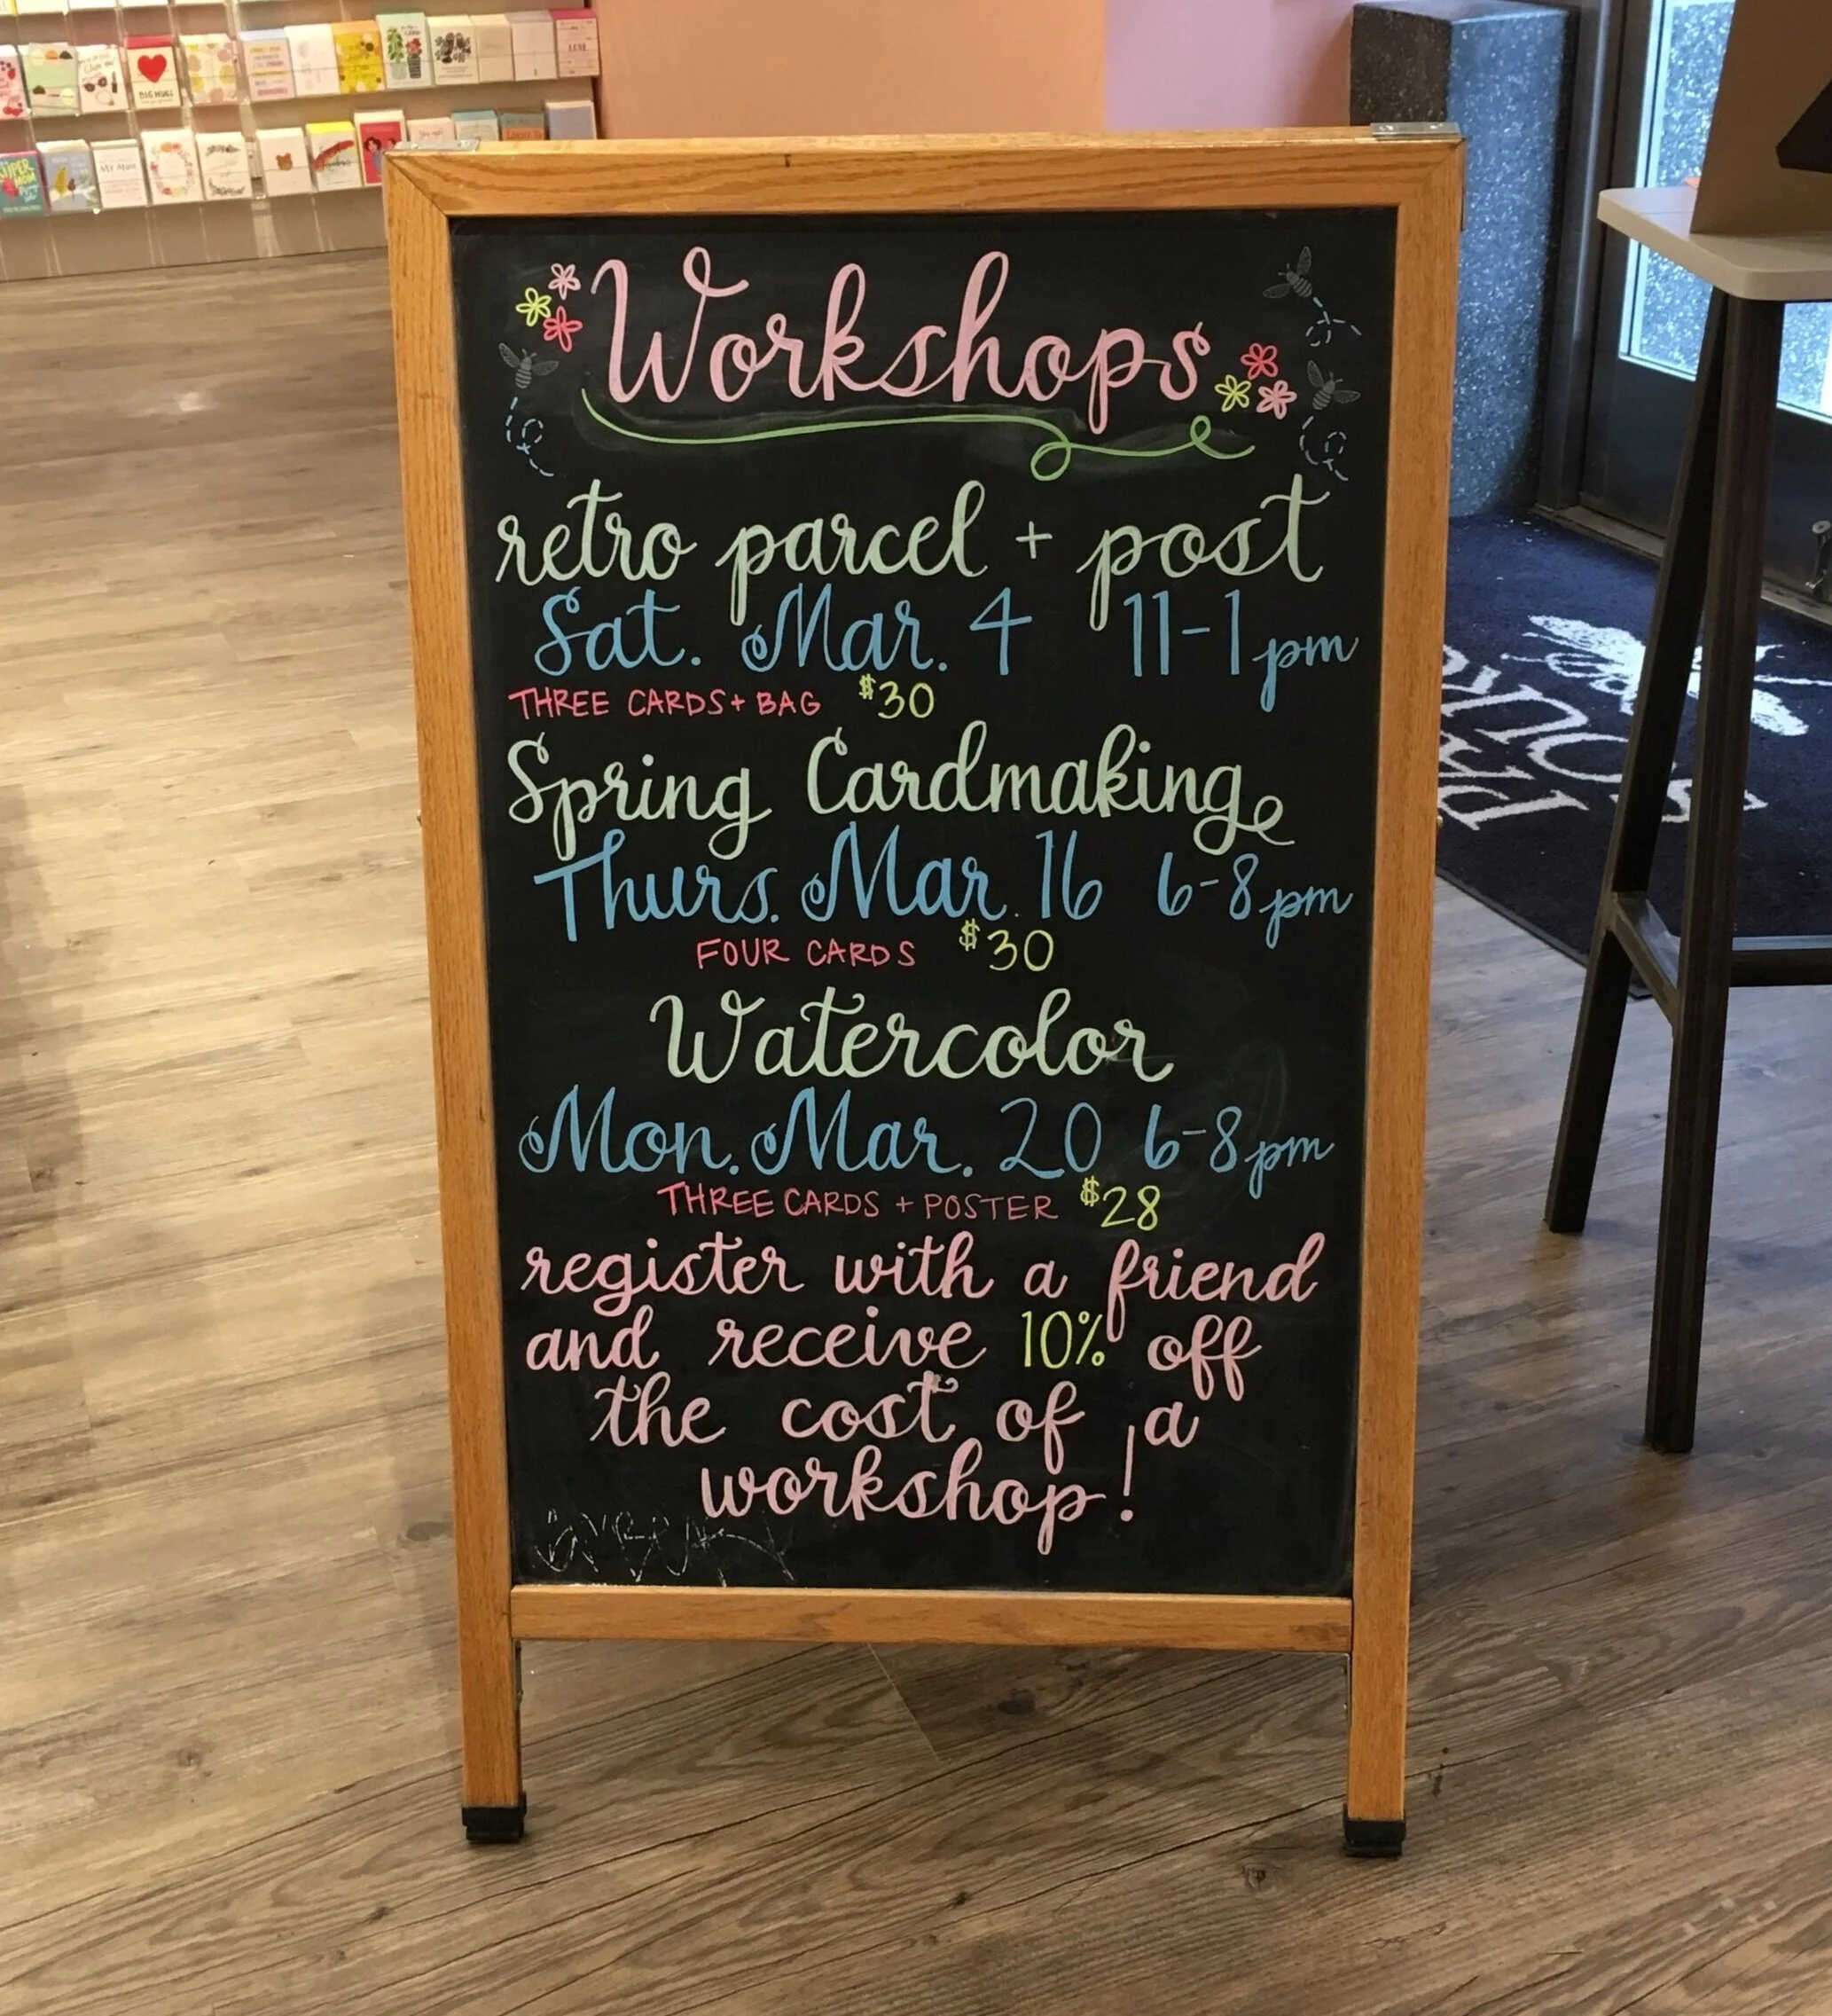 Workshops
retro parcel + post
Sat. Mar. 4 11-1pm
THREE CARDS + BAG $30
Spring Cardmaking
Thurs. Mar. 16 6-8pm
FOUR CARDS $30
Watercolor
Mon. Mar. 20 6-8pm
THREE CARDS + POSTER $28
register with a friend
and receive 10% off
the cost of a
workshop!
BIG HUG
MY MUM
SUPER
MOM
PAP
SOUR